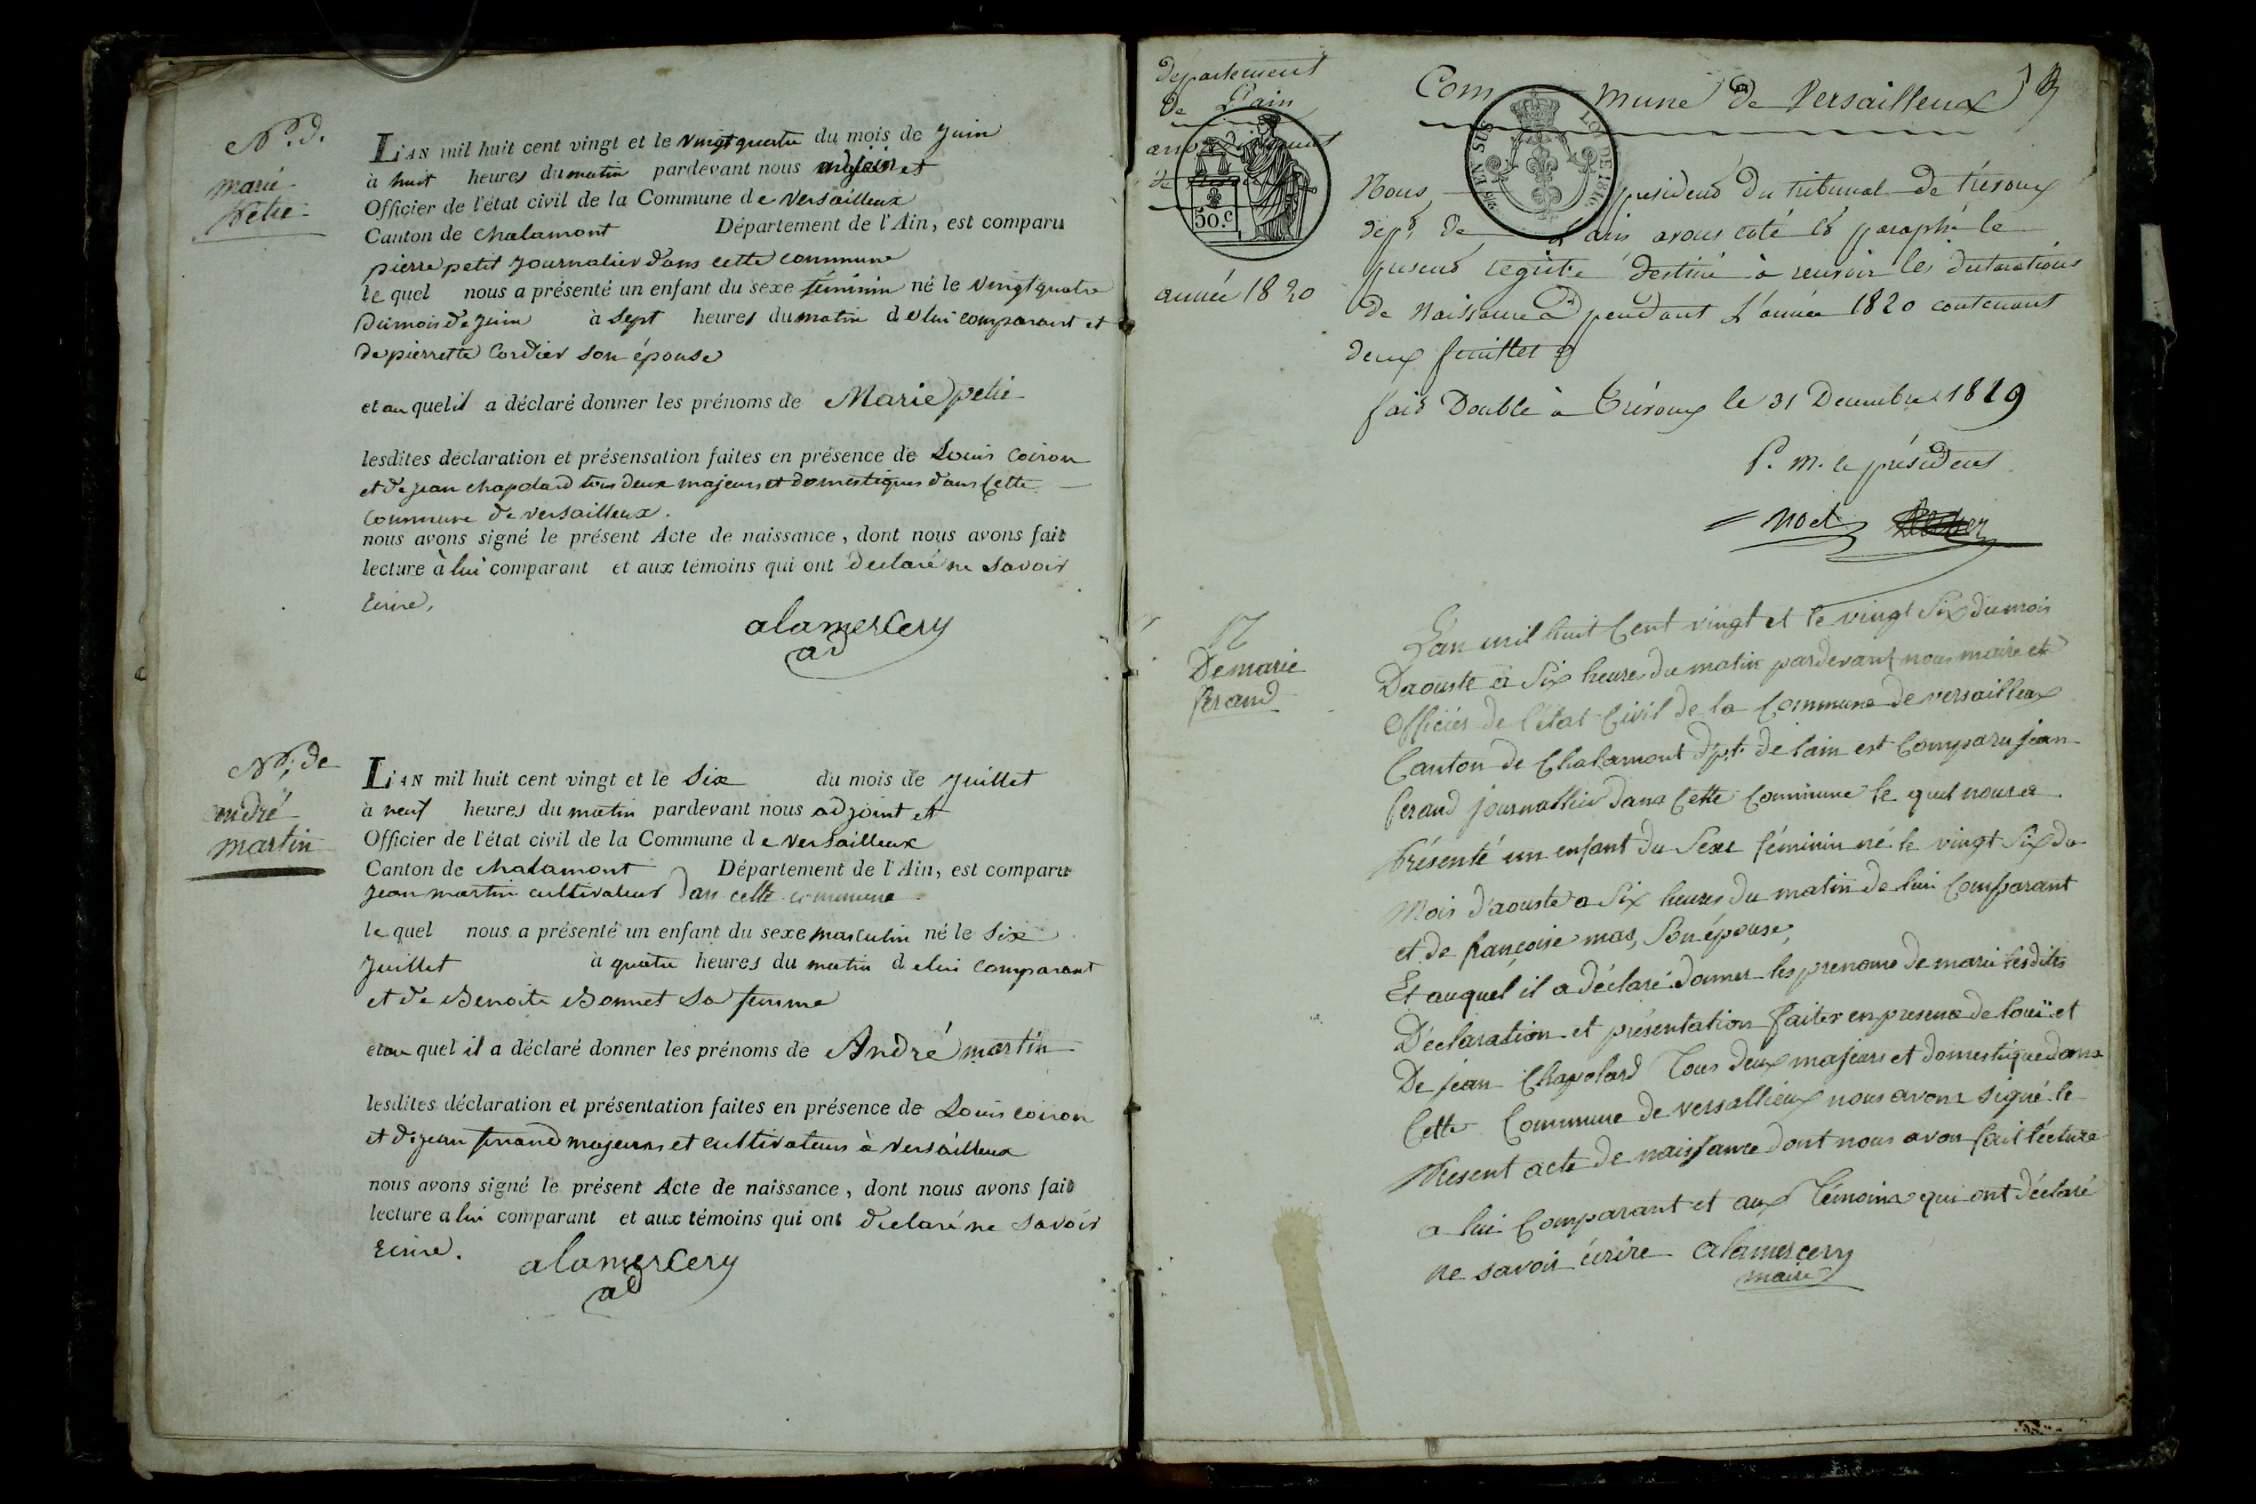 Nce. d.
marie
Petie
L'AN mil huit cent vingt et le vingt quatre du mois de juin
à huit heures du matin pardevant nous adjoint et
Officier de l'état civil de la Commune de versailleux
Canton de chalamont Département de l'Ain, est comparu
pierre petit journalier dans cette commune
le quel nous a présenté un enfant du sexe féminin né le vingt quatre
du mois de juin à sept heures du matin de lui comparant et
de pierrette Cordier son épouse
et au quel il a déclaré donner les prénoms de Marie petie
lesdites déclaration et présensation faites en présence de Louis coiron
et de jean chapolard tous deux majeurs et domestiques dans cette
commune de versailleux.
nous avons signé le présent Acte de naissance, dont nous avons fait
lecture à lui comparant et aux témoins qui ont declaré ne savoir
Ecrire.
alamercery
ad
Nce. de
andré
martin
L'AN mil huit cent vingt et le Six du mois de juillet
à neuf heures du matin pardevant nous adjoint et
Officier de l'état civil de la Commune de versailleux
Canton de chalamont Département de l'Ain, est comparu
jean martin cultivateur dans cette commune
le quel nous a présenté un enfant du sexe masculin né le Six
juillet à quatre heures du matin de lui comparant
et de Benoite Bonnet sa femme
et au quel il a déclaré donner les prénoms de André martin
lesdites déclaration et présentation faites en présence de Louis coiron
et de jean ferrand majeurs et cultivateurs à versailleux
nous avons signé le présent Acte de naissance, dont nous avons fait
lecture a lui comparant et aux témoins qui ont declaré ne savoir
Ecrire.
alamercery
ad
département
De L'ain
de
50.c
année 1820
Commune De Versailleux
EN SUS
LOI DE 1816
Nous président du tribunal de trévoux
dept. de L'ain avons coté & paraphé le
présent registre destiné à recevoir les déclarations
de Naissance pendant L'année 1820 contenant
deux feuillets
fait Double à Trévoux le 31 Decembre 1819
P. m. le président
Noel
N
De marie
ferand
L'an mil huit Cent vingt et le vingt Six du mois
Daouste à Six heures du matin pardevant nous maire et
Officier de l'état Civil de la Commune de versailleux
Canton de Chalamont dpt. de lain est Comparu jean
ferand journallier dans Cette Commune le quel nous a
Présenté un enfant du Sexe féminin né le vingt Six du
Mois d'aouste a Six heures du matin de lui Comparant
et de françoise mas, Son épouse,
Et auquel il a déclaré donner les prenoms de marie lesdites
Déclaration et présentation faites en presence de loui et
De jean Chapolard Tous deux majeurs et domestique dans
Cette Commune de versallieux nous avons signé le
Present acte de naissance dont nous avon fait lécture
a lui Comparant et aux Témoins qui ont déclaré
ne savoir écrire alamercery
maire